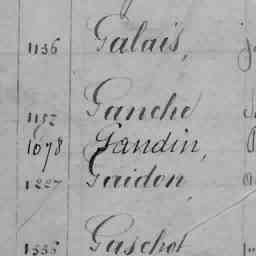 1156 Galais,
1157 Ganche
1078 Gandin,
1227 Gaidon
1558 Gaschot